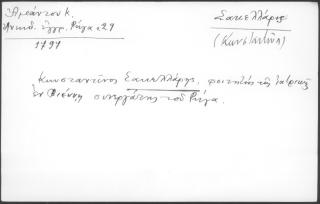 Ἀμάντου Κ.
Ἀνέκδ. ἔγγρ. Ρήγα σ. 29
1797
Σακελλάρης
(Κωνσταντῖνος)
Κωνσταντῖνος Σακελλάρης, φοιτητὴς τῆς ἰατρικῆς
ἐν Βιέννῃ συνεργάτης τοῦ Ρήγα.